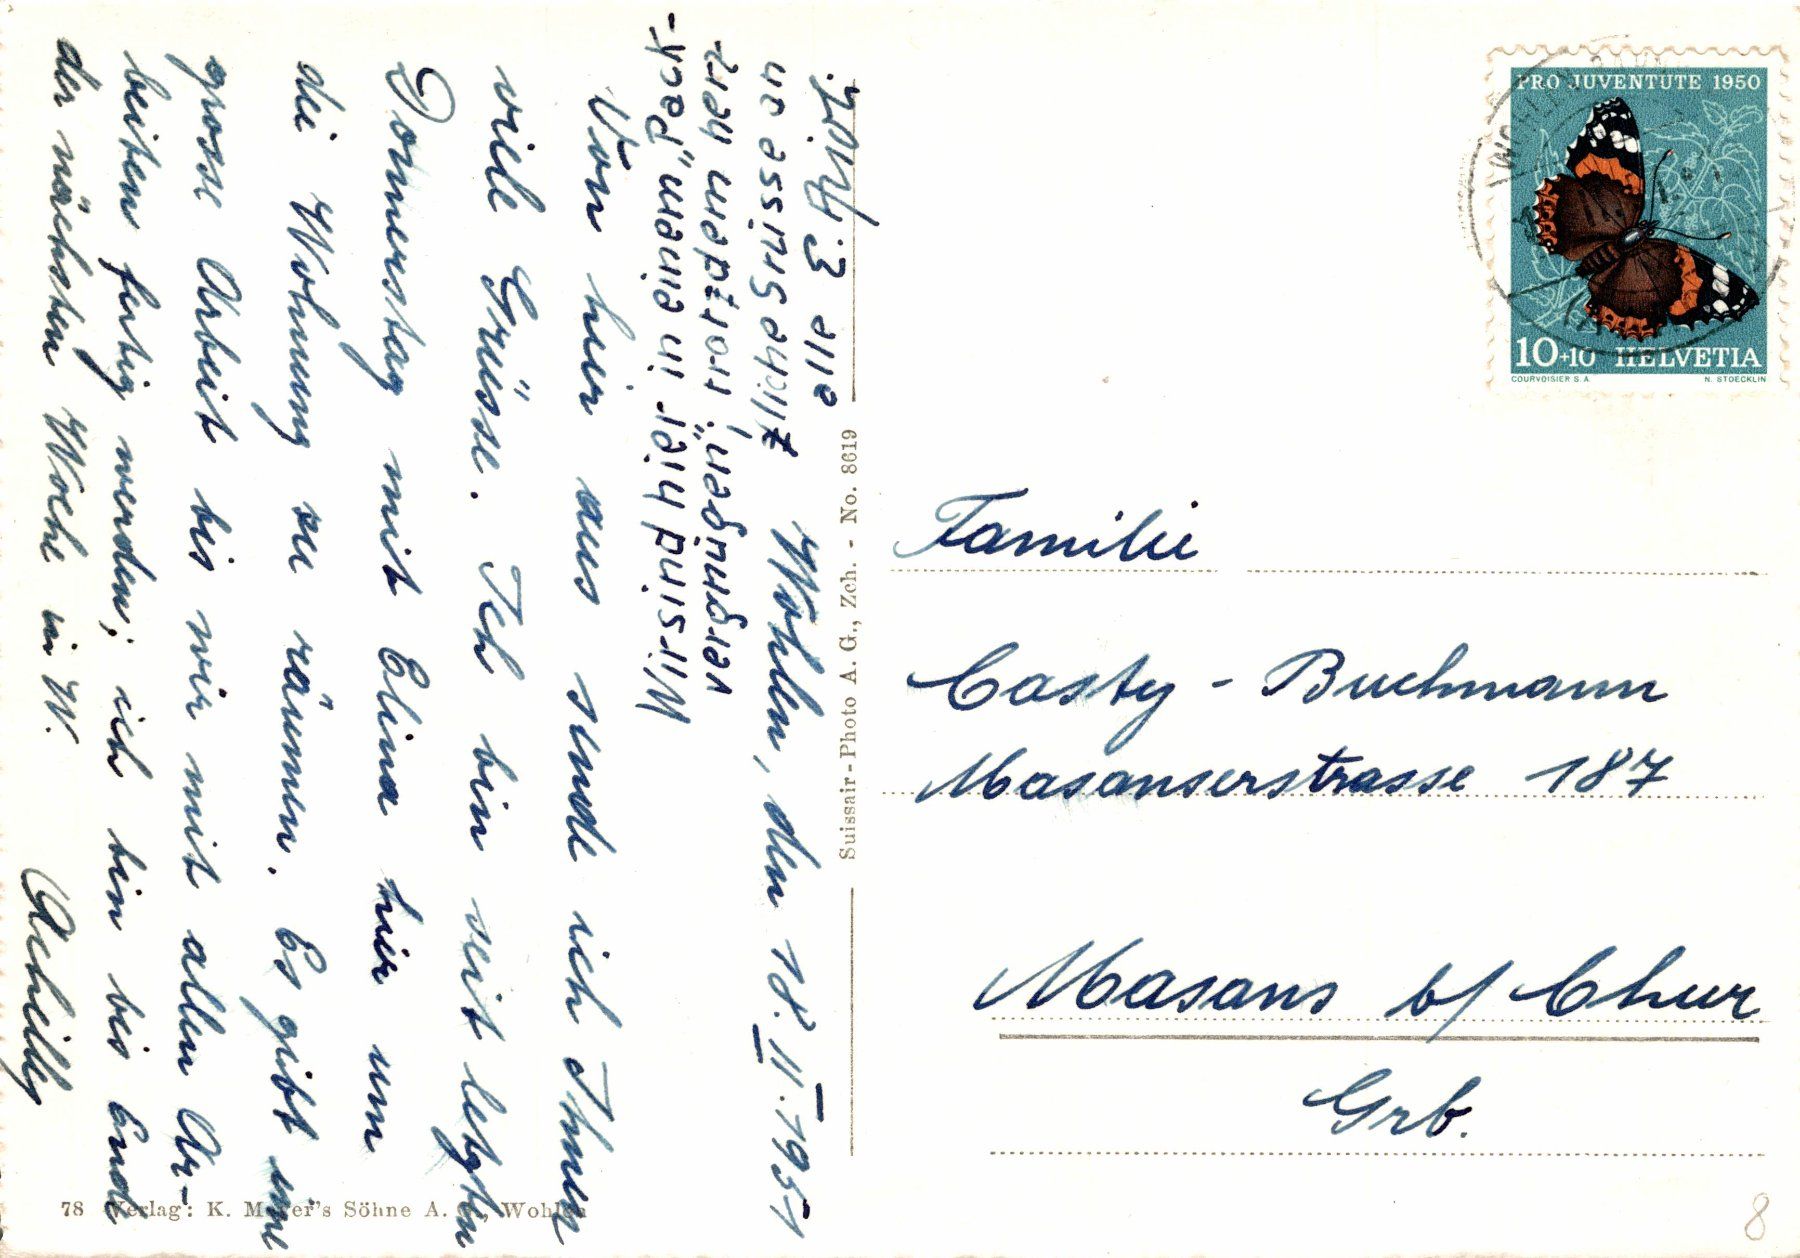 Wohlen, den 18. II. 1951
Von hier aus sende ich Ihnen
viele Grüsse. Ich bin seit letzten
Donnerstag mit Elina hier um
die Wohnung zu räumen. Es gibt eine
grosse Arbeit bis wir mit allen Ar-
beiten fertig werden; ich bin bis Ende
der nächsten Woche in W.
Wir sind hier in einem „Pack-
vergnügen", trotzdem herz-
liche Grüsse an
alle
PRO JUVENTUTE 1950
10+10 HELVETIA
COURVOISIER S.A. N. STOECKLIN
WOHLEN
Familie
Casty - Buchmann
Masanserstrasse 187
Masans b/ Chur
Grb.
Suissair-Photo A. G., Zch. - No. 8619
78 Verlag: K. Meyer's Söhne A. G., Wohlen
8